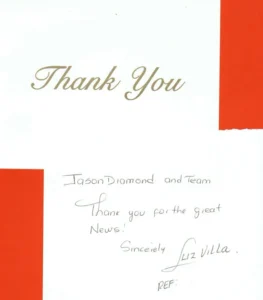 Thank You
Jason Diamond and Team
Thank you for the great
News!
Sincerely Luz Villa.
REF: